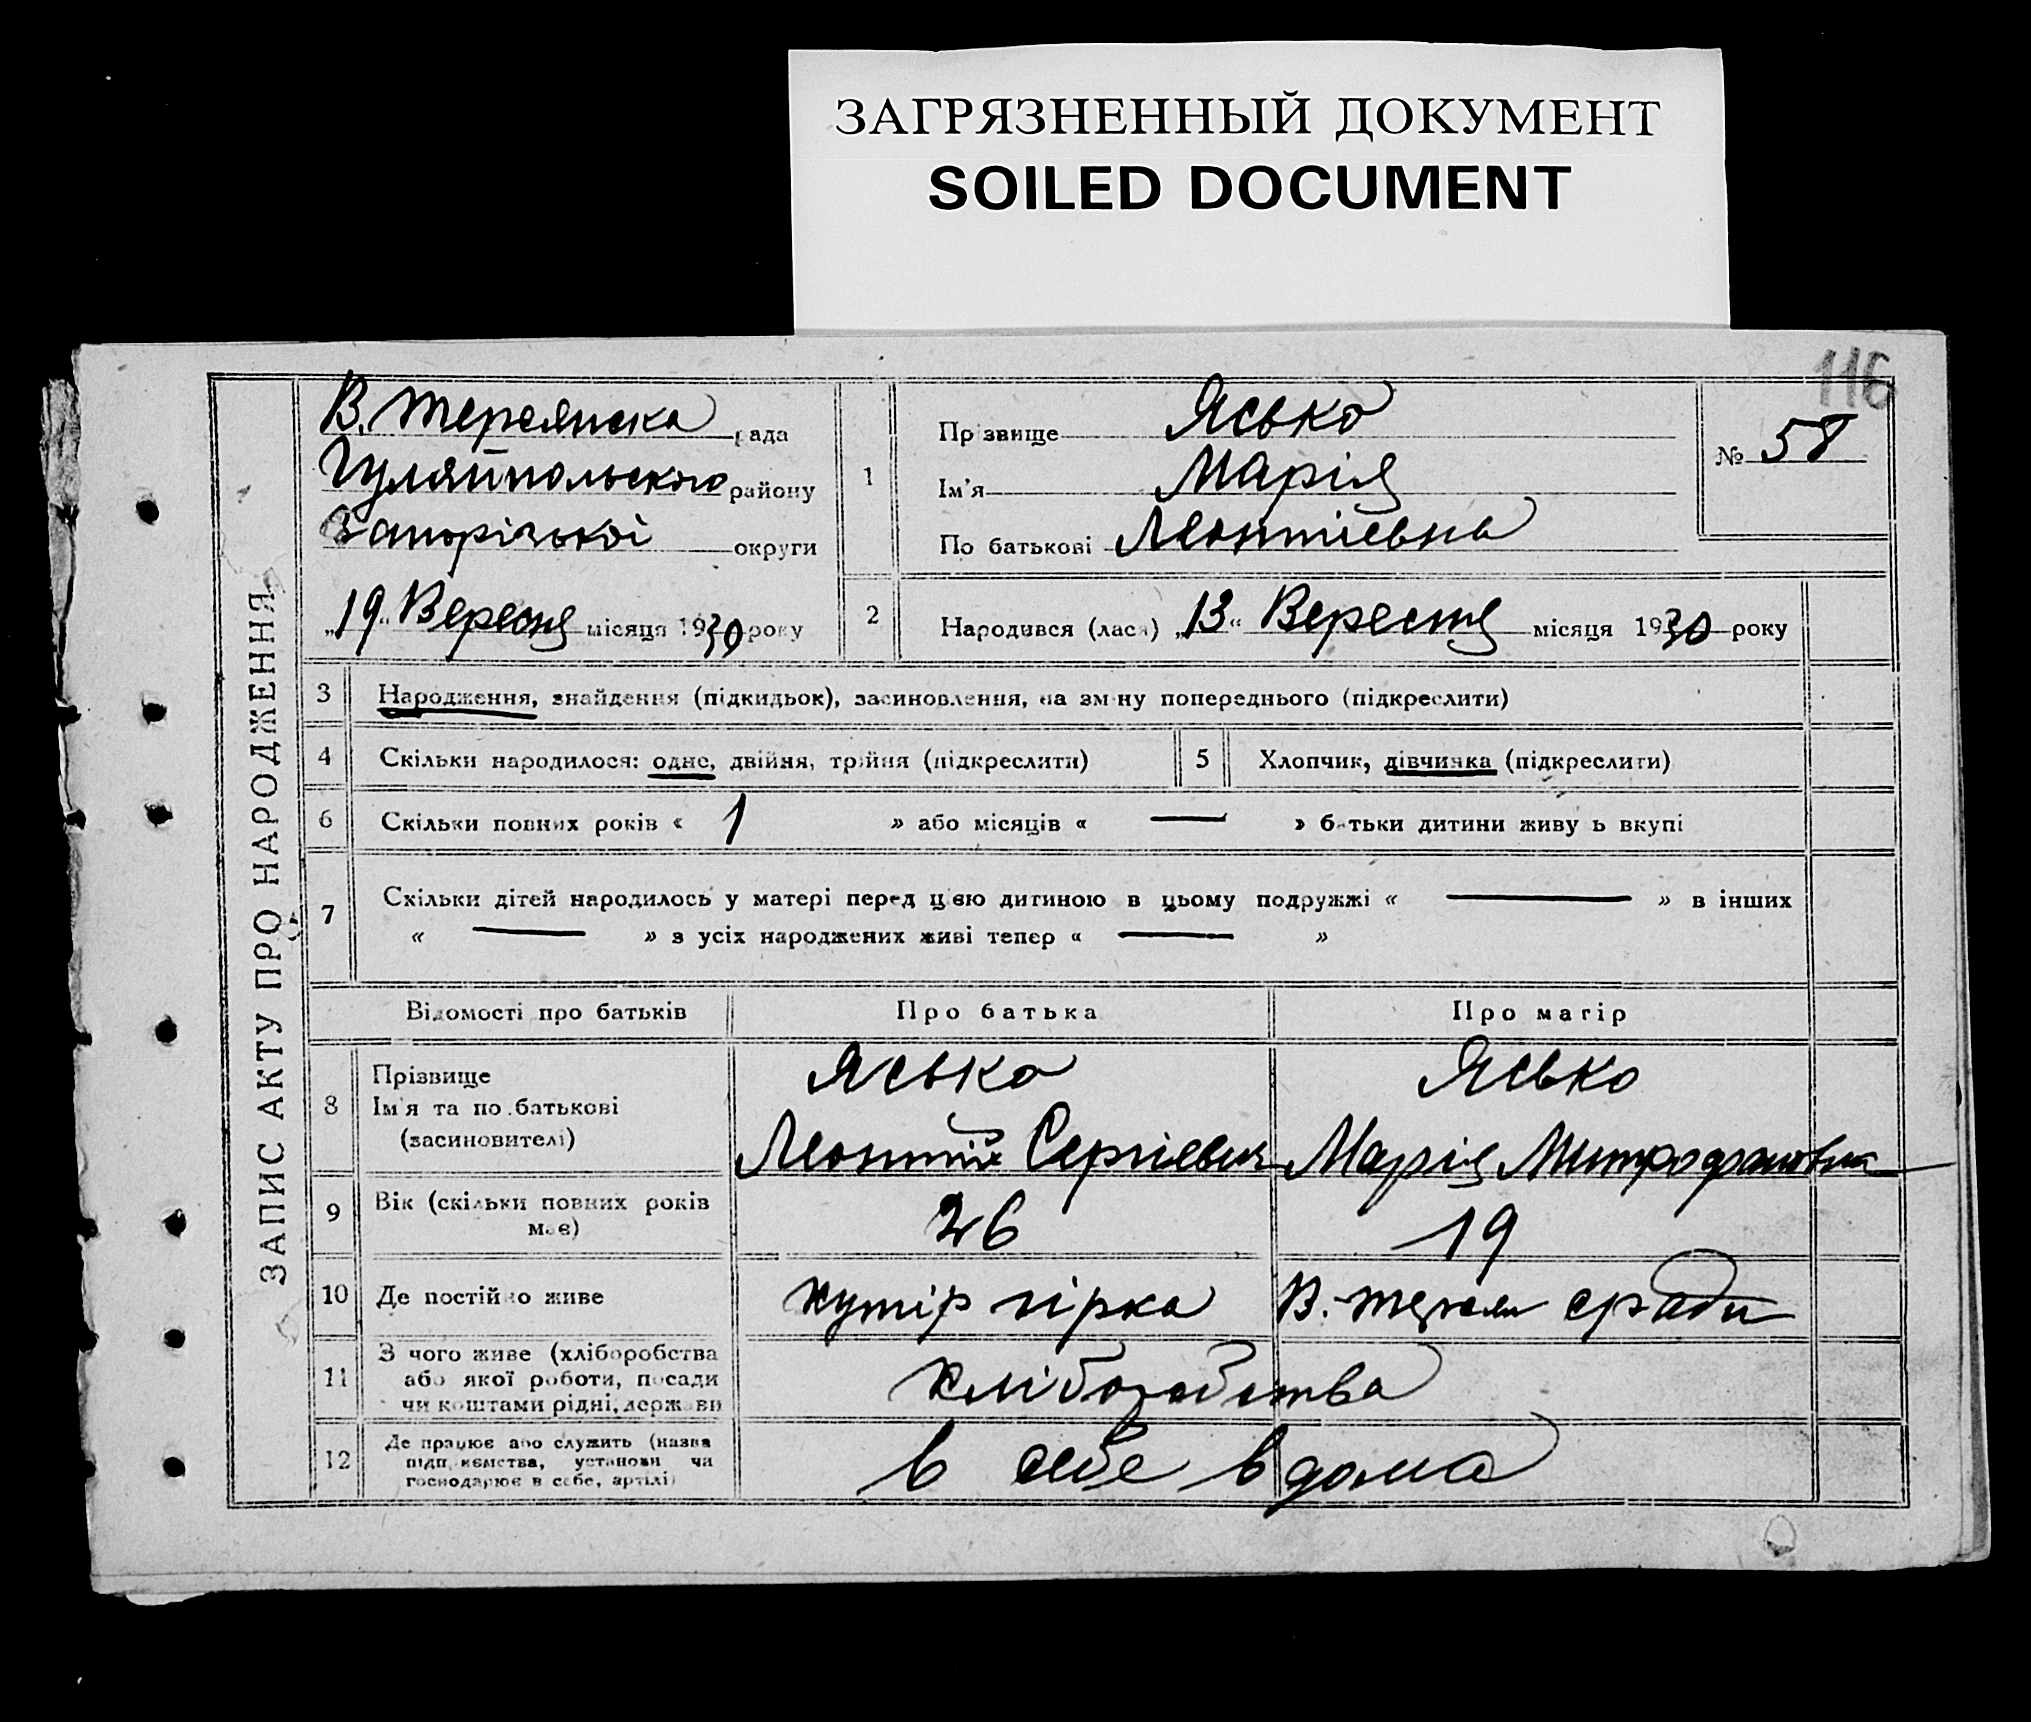 ЗАГРЯЗНЕННЫЙ ДОКУМЕНТ
SOILED DOCUMENT
116
ЗАПИС АКТУ ПРО НАРОДЖЕННЯ
В. Терсянска рада
Гуляйпольского району
Запорізької округи
„19“ Вересня місяця 1930 року
1 Прізвище Ясько
Ім'я Марія
По батькові Леонтіевна
№ 58
2 Народився (лася) „13“ Вересня місяця 1930 року
3 Народження, знайдення (підкидьок), засиновлення, на зміну попереднього (підкреслити)
4 Скільки народилося: одне, двійня, трійня (підкреслити) 5 Хлопчик, дівчинка (підкреслити)
6 Скільки повних років « 1 » або місяців « — » батьки дитини живуть вкупі
7 Скільки дітей народилось у матері перед цією дитиною в цьому подружжі « — » в інших
« — » з усіх народжених живі тепер « — »
Відомості про батьків Про батька Про матір
8 Прізвище Ясько Ясько
Ім'я та по батькові
(засиновителі) Леонтій Сергієвич Марія Митрофановна
9 Вік (скільки повних років
має) 26 19
10 Де постійно живе хутір гірка В.-Терсян сради
11 З чого живе (хліборобства
або якої роботи, посади
чи коштами рідні, держави хліборобства
12 Де працює або служить (назва
підприємства, установи чи
господарює в себе, артілі) в себе вдома